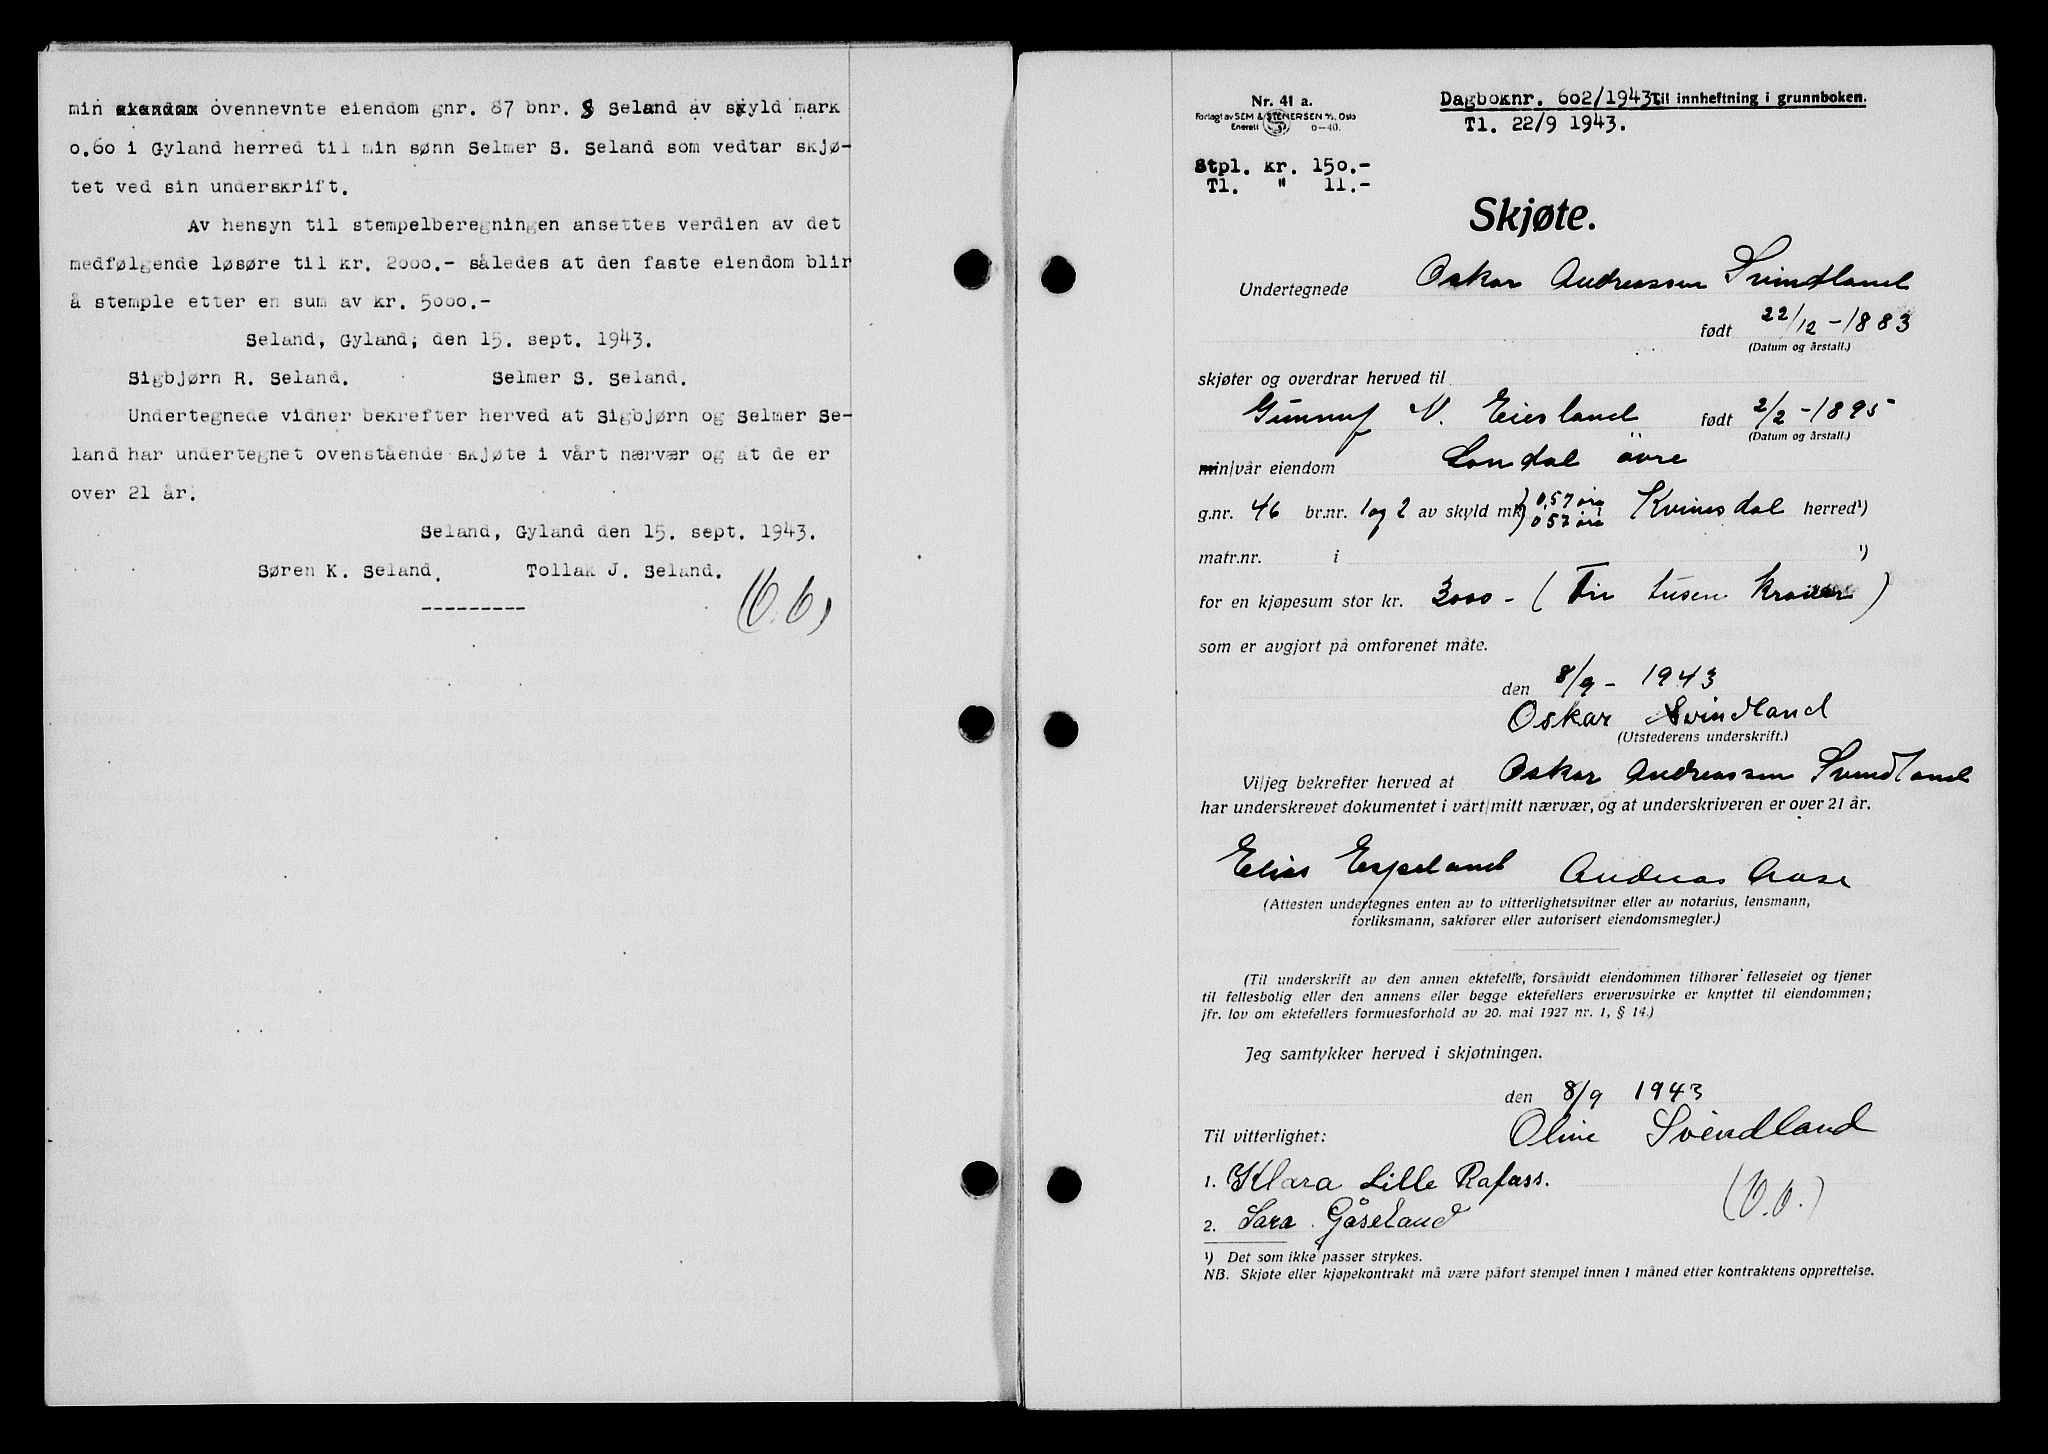 min ovennevnte eiendom gnr. 87 bnr. 8 Seland av skyld mark
0.60 i Gyland herred til min sønn Selmer S. Seland som vedtar skjø-
tet ved sin underskrift.
Av hensyn til stempelberegningen ansettes verdien av det
medfølgende løsøre til kr. 2000.- således at den faste eiendom blir
å stemple etter en sum av kr. 5000.-
Seland, Gyland, den 15. sept. 1943.
Sigbjørn R. Seland. Selmer S. Seland.
Undertegnede vidner bekrefter herved at Sigbjørn og Selmer Se-
land har undertegnet ovenstående skjøte i vårt nærvær og at de er
over 21 år.
Seland, Gyland den 15. sept. 1943.
Søren K. Seland. Tollak J. Seland.
----------
Nr. 41 a.
Forlagt av SEM & STENERSEN A/S, Oslo
Enerett 6-40.
Dagboknr. 602/1943. Til innheftning i grunnboken.
Tl. 22/9 1943.
Stpl. kr. 150.-
Tl. " 11.-
Skjøte.
Undertegnede Oskar Andreassen Svindland
født 22/12 - 1883
(Datum og årstall.)
skjøter og overdrar herved til
Gunnuf N. Eiesland født 2/2 - 1895
(Datum og årstall.)
min/vår eiendom Londal övre
g.nr. 46 br.nr. 1 og 2 av skyld mk. 0,57 öre 0,57 öre Kvinesdal herred¹)
matr.nr. i ¹)
for en kjøpesum stor kr. 3000 - ( Tre tusen kroner )
som er avgjort på omforenet måte.
den 8/9 - 1943
Oskar Svindland
(Utstederens underskrift.)
Vi/jeg bekrefter herved at Oskar Andreassen Svindland
har underskrevet dokumentet i vårt/mitt nærvær, og at underskriveren er over 21 år.
Elias Espeland Andreas Aase
(Attesten undertegnes enten av to vitterlighetsvitner eller av notarius, lensmann,
forliksmann, sakfører eller autorisert eiendomsmegler.)
(Til underskrift av den annen ektefelle, forsåvidt eiendommen tilhører felleseiet og tjener
til fellesbolig eller den annens eller begge ektefellers ervervsvirke er knyttet til eiendommen;
jfr. lov om ektefellers formuesforhold av 20. mai 1927 nr. 1, § 14.)
Jeg samtykker herved i skjøtningen.
den 8/9 1943
Til vitterlighet: Oline Svindland
1. Klara Lille Rafoss.
2. Sara Gåseland
¹) Det som ikke passer strykes.
NB. Skjøte eller kjøpekontrakt må være påført stempel innen 1 måned etter kontraktens opprettelse.